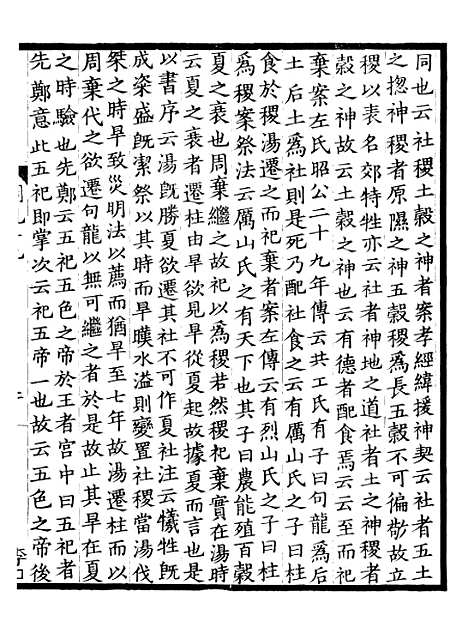 同也云社稷土糓之神者案孝經緯援神契云社者五土
之揔神稷者原隰之神五糓稷爲長五糓不可偏敬故立
稷以表名郊特牲亦云社者神地之道社者土之神稷者
糓之神故云土糓之神也云有德者配食焉云云至而祀
棄案左氏昭公二十九年傳云共工氏有子曰句龍爲后
土后土爲社則是死乃配社食之云有厲山氏之子曰柱
食於稷湯遷之而祀棄者案左傳云有烈山氏之子曰柱
爲稷案祭法云厲山氏之有天下也其子曰農能殖百糓
夏之衰也周棄繼之故祀以爲稷若然稷祀棄實在湯時
云夏之衰者遷柱由旱欲見旱從夏起故據夏而言也是
以書序云湯旣勝夏欲遷其社不可作夏社注云犧牲旣
成粢盛旣潔祭以其時而旱暵水溢則變置社稷當湯伐
桀之時旱致災明法以薦而猶旱至七年故湯遷柱而以
周棄代之欲遷句龍以無可繼之者於是故止其旱在夏
之時驗也先鄭云五祀五色之帝於王者宫中曰五祀者
先鄭意此五祀即掌次云祀五帝一也故云五色之帝後